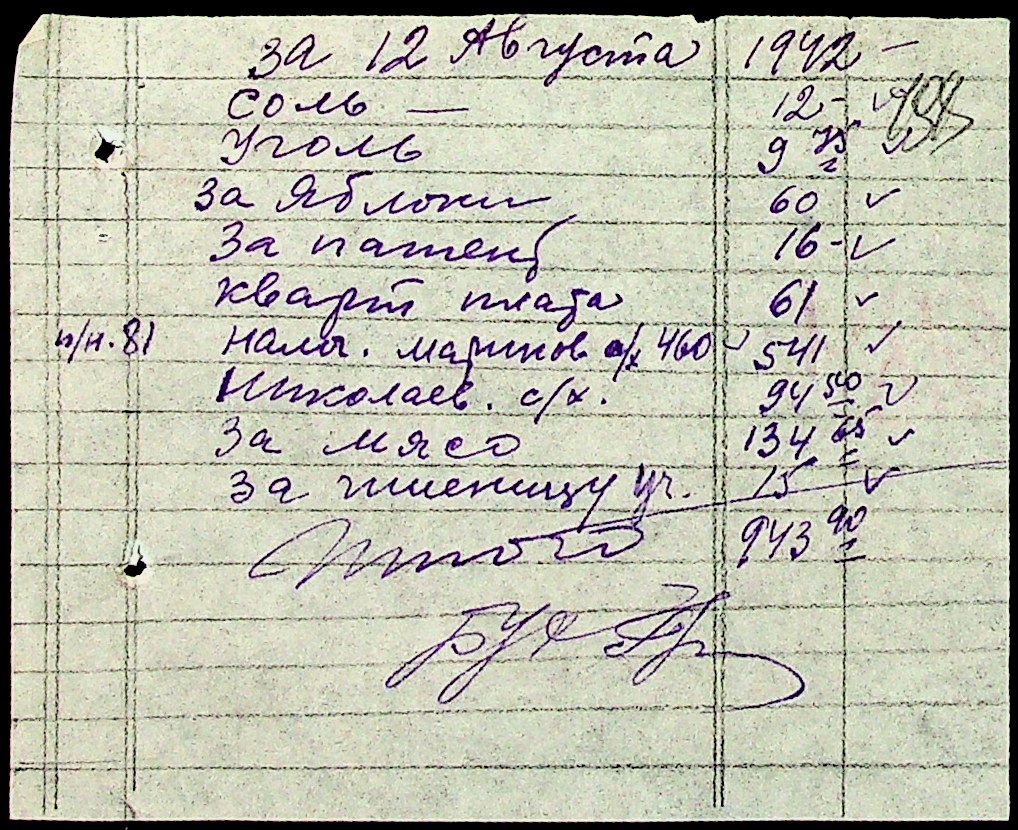 за 12 Августа 1942 —
соль — 12 -
уголь 9 75
за Яблоки 60
за патент 16 -
кварт плата 61
п/н. 81 налог. маринов с/х 460 541
Николаев. с/х. 94 50
за мясо 134 65
за пшеницу уч. 15
Итого 943 90
Бух